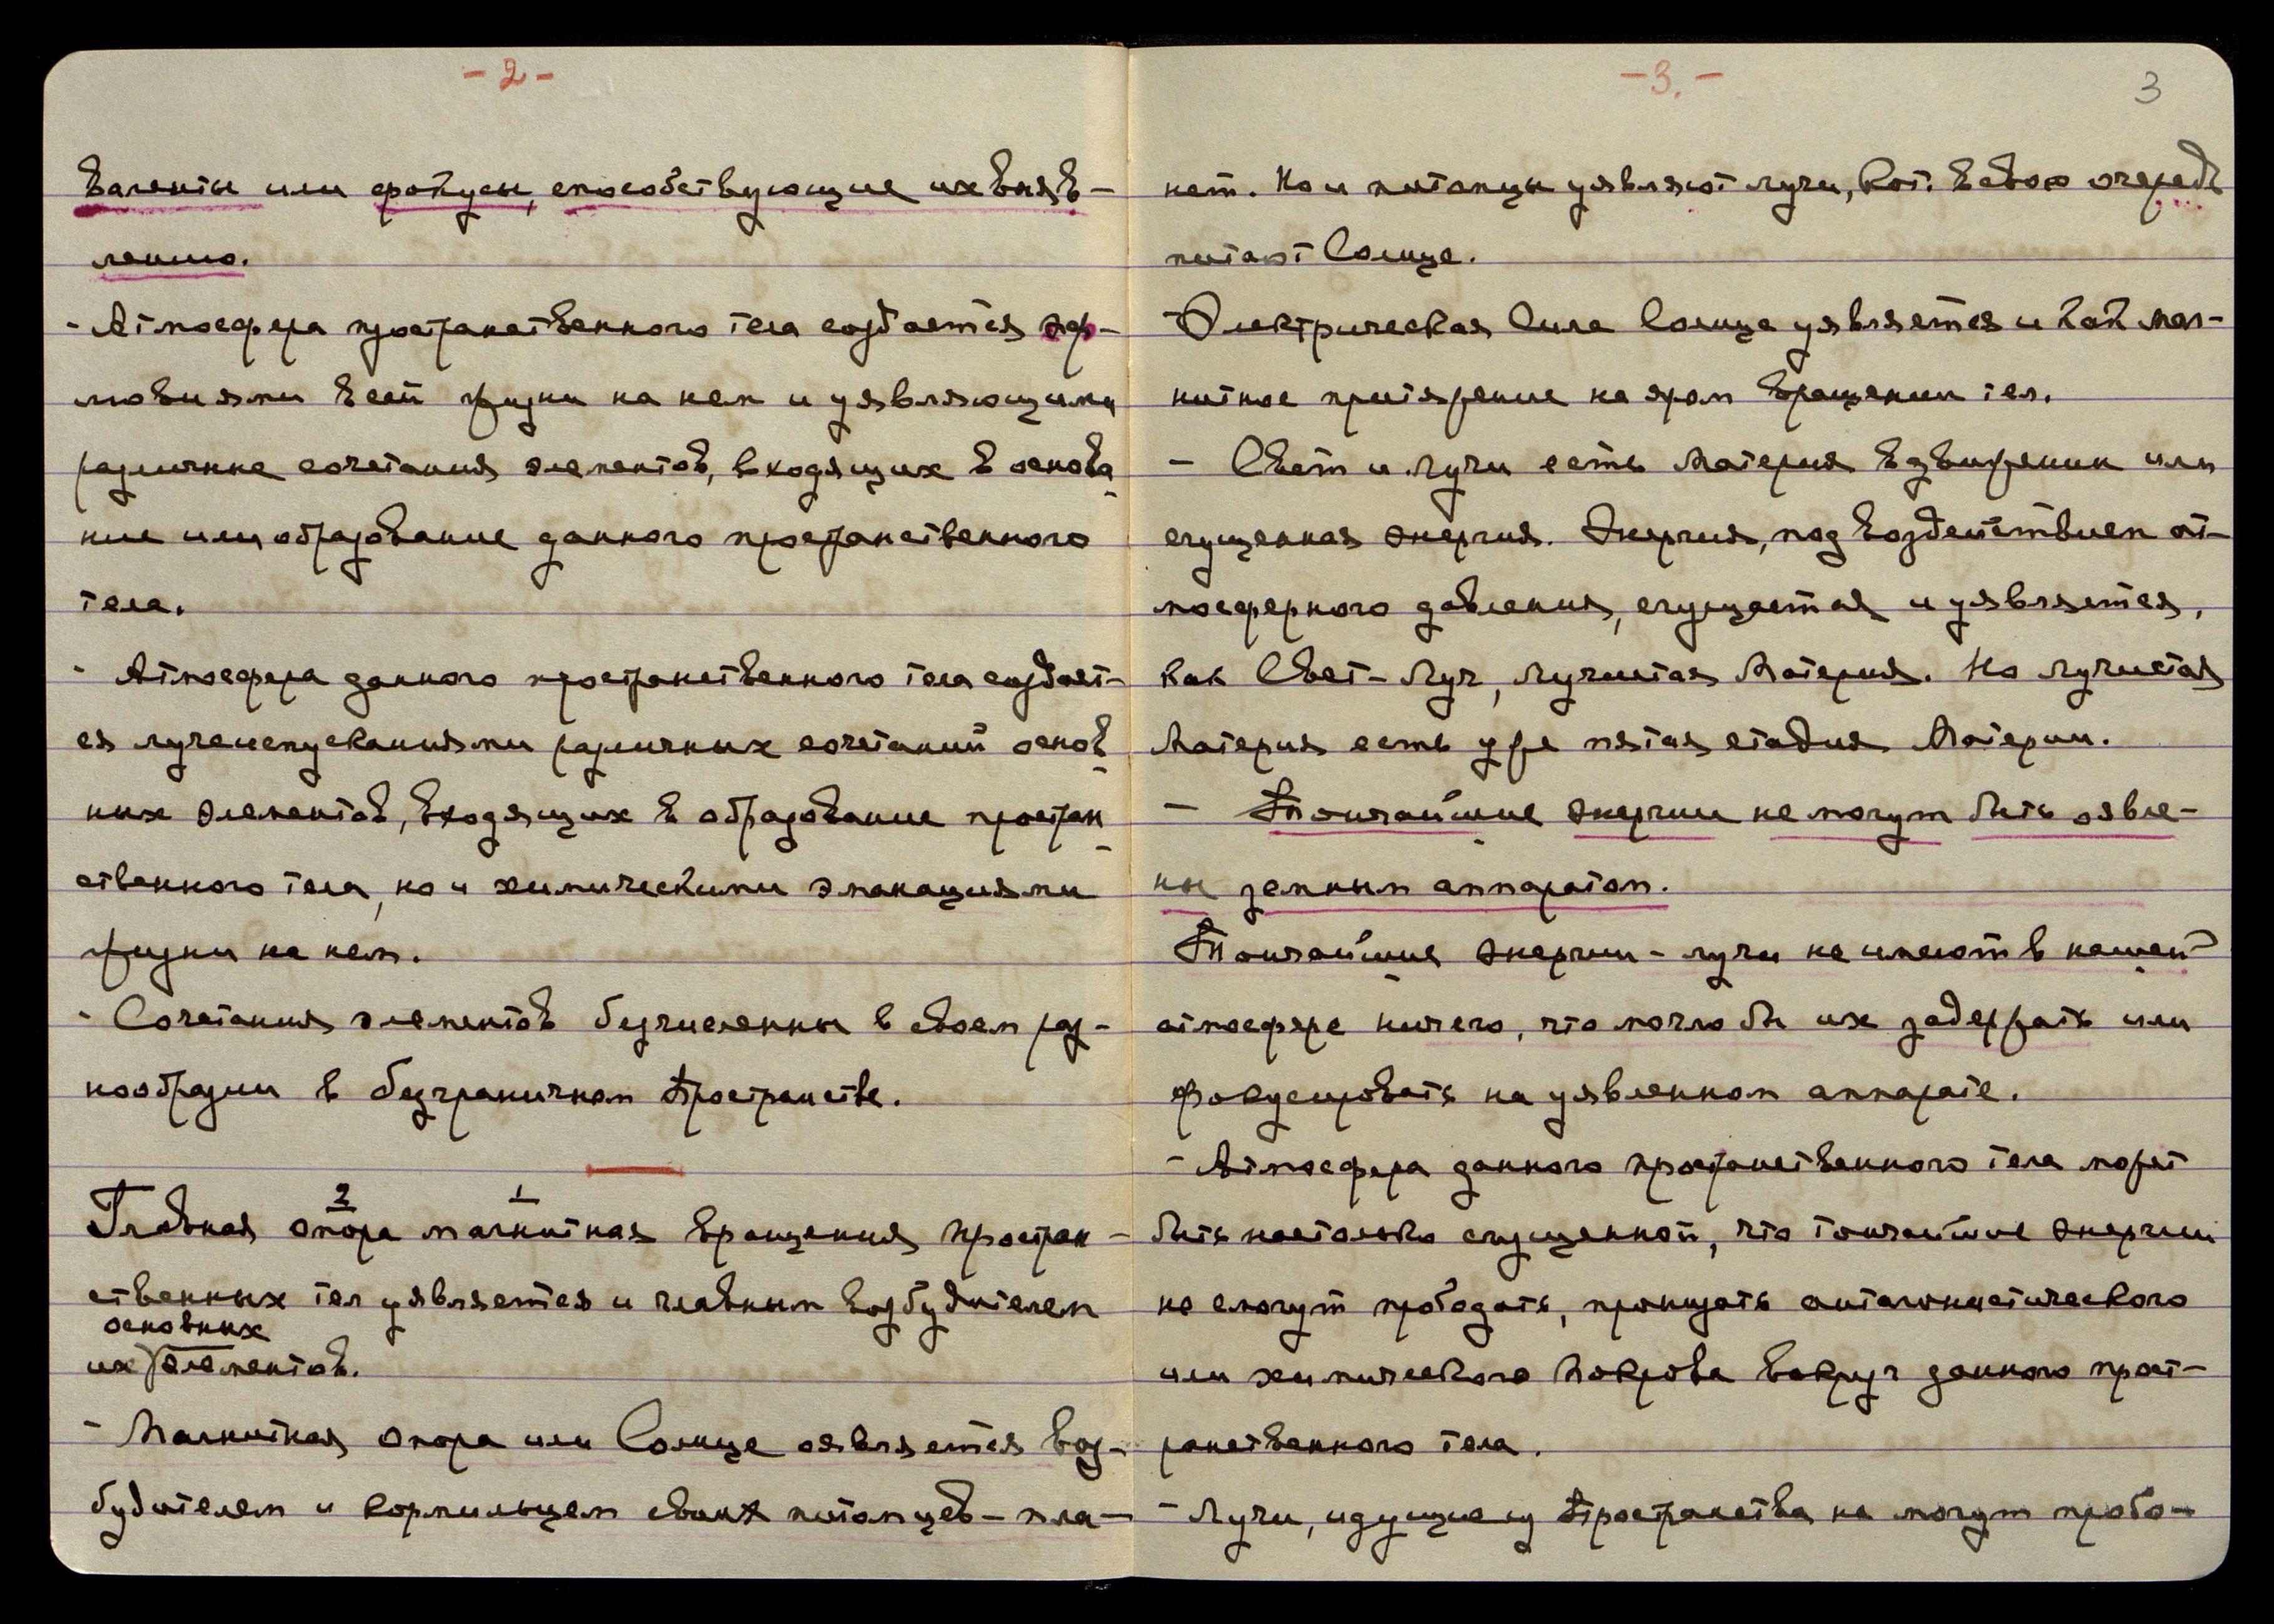 - 2 -
валенты или фокусы, способствующие их выяв-
лению.
- Атмосфера пространственного тела создается эф-
лювиями всей жизни на нем и уявляющими
различные сочетания элементов, входящих в основа-
ние или образование данного пространственного
тела.
- Атмосфера данного пространственного тела создает-
ся лучеиспусканиями различных сочетаний основ-
ных элементов, входящих в образование простран-
ственного тела, но и химическими эманациями
жизни на нем.
- Сочетания элементов безчисленны в своем раз-
нообразии в безграничном Пространстве.
2 1
Главная опора магнитная вращения простран-
ственных тел уявляется и главным возбудителем
основных
их элементов.
- Магнитная опора или Солнце оявляется воз-
будителем и кормильцем своих питомцев - пла-
- 3. -
3
нет. Но и питомцы уявляют лучи, кот. в свою очередь
питают Солнце.
- Электрическая Сила Солнца уявляется и как маг-
нитное притяжение на яром вращении тел.
- Свет и лучи есть Материя в движении или
сгущенная энергия. Энергия, под воздействием ат-
мосферного давления, сгущается и уявляется,
как Свет - Луч, Лучистая Материя. Но лучистая
Материя есть уже пятая стадия Материи.
- Тончайшие энергии не могут быть оявле-
ны земным аппаратом.
Тончайшие энергии - лучи не имеют в нашей
атмосфере ничего, что могло бы их задержать или
фокусировать на уявленном аппарате.
- Атмосфера данного пространственного тела может
быть настолько сгущенной, что тончайшие энергии
не смогут прободать, пронизать антагонистического
или химического покрова вокруг данного прост-
ранственного тела.
- Лучи, идущие из Пространства не могут пробо-